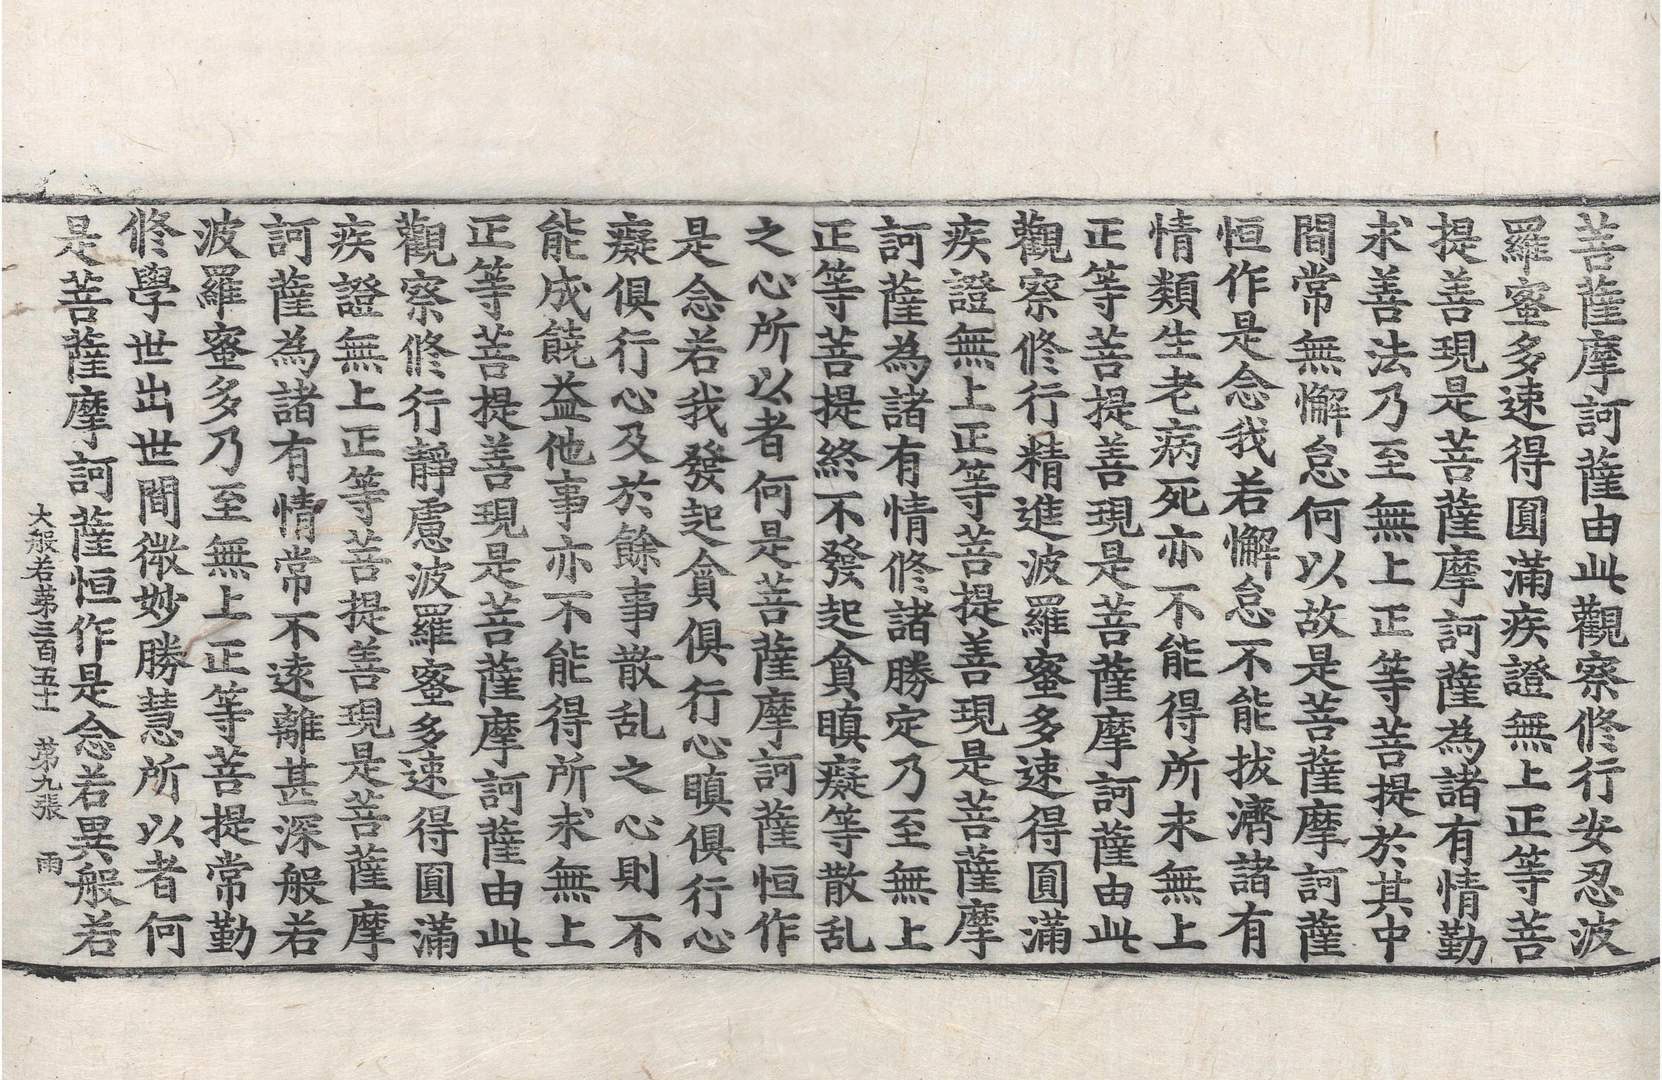 菩薩摩訶薩由此觀察修行安忍波
羅蜜多速得圓滿疾證無上正等菩
提善現是菩薩摩訶薩為諸有情勤
求善法乃至無上正等菩提於其中
間常無懈怠何以故是菩薩摩訶薩
恒作是念我若懈怠不能拔濟諸有
情類生老病死亦不能得所求無上
正等菩提善現是菩薩摩訶薩由此
觀察修行精進波羅蜜多速得圓滿
疾證無上正等菩提善現是菩薩摩
訶薩為諸有情修諸勝定乃至無上
正等菩提終不發起貪瞋癡等散乱
之心所以者何是菩薩摩訶薩恒作
是念若我發起貪俱行心瞋俱行心
癡俱行心及於餘事散乱之心則不
能成饒益他事亦不能得所求無上
正等菩提善現是菩薩摩訶薩由此
觀察修行靜慮波羅蜜多速得圓滿
疾證無上正等菩提善現是菩薩摩
訶薩為諸有情常不遠離甚深般若
波羅蜜多乃至無上正等菩提常勤
修學世出世間微妙勝慧所以者何
是菩薩摩訶薩恒作是念若異般若
大般若第三百五十一 第九張 雨